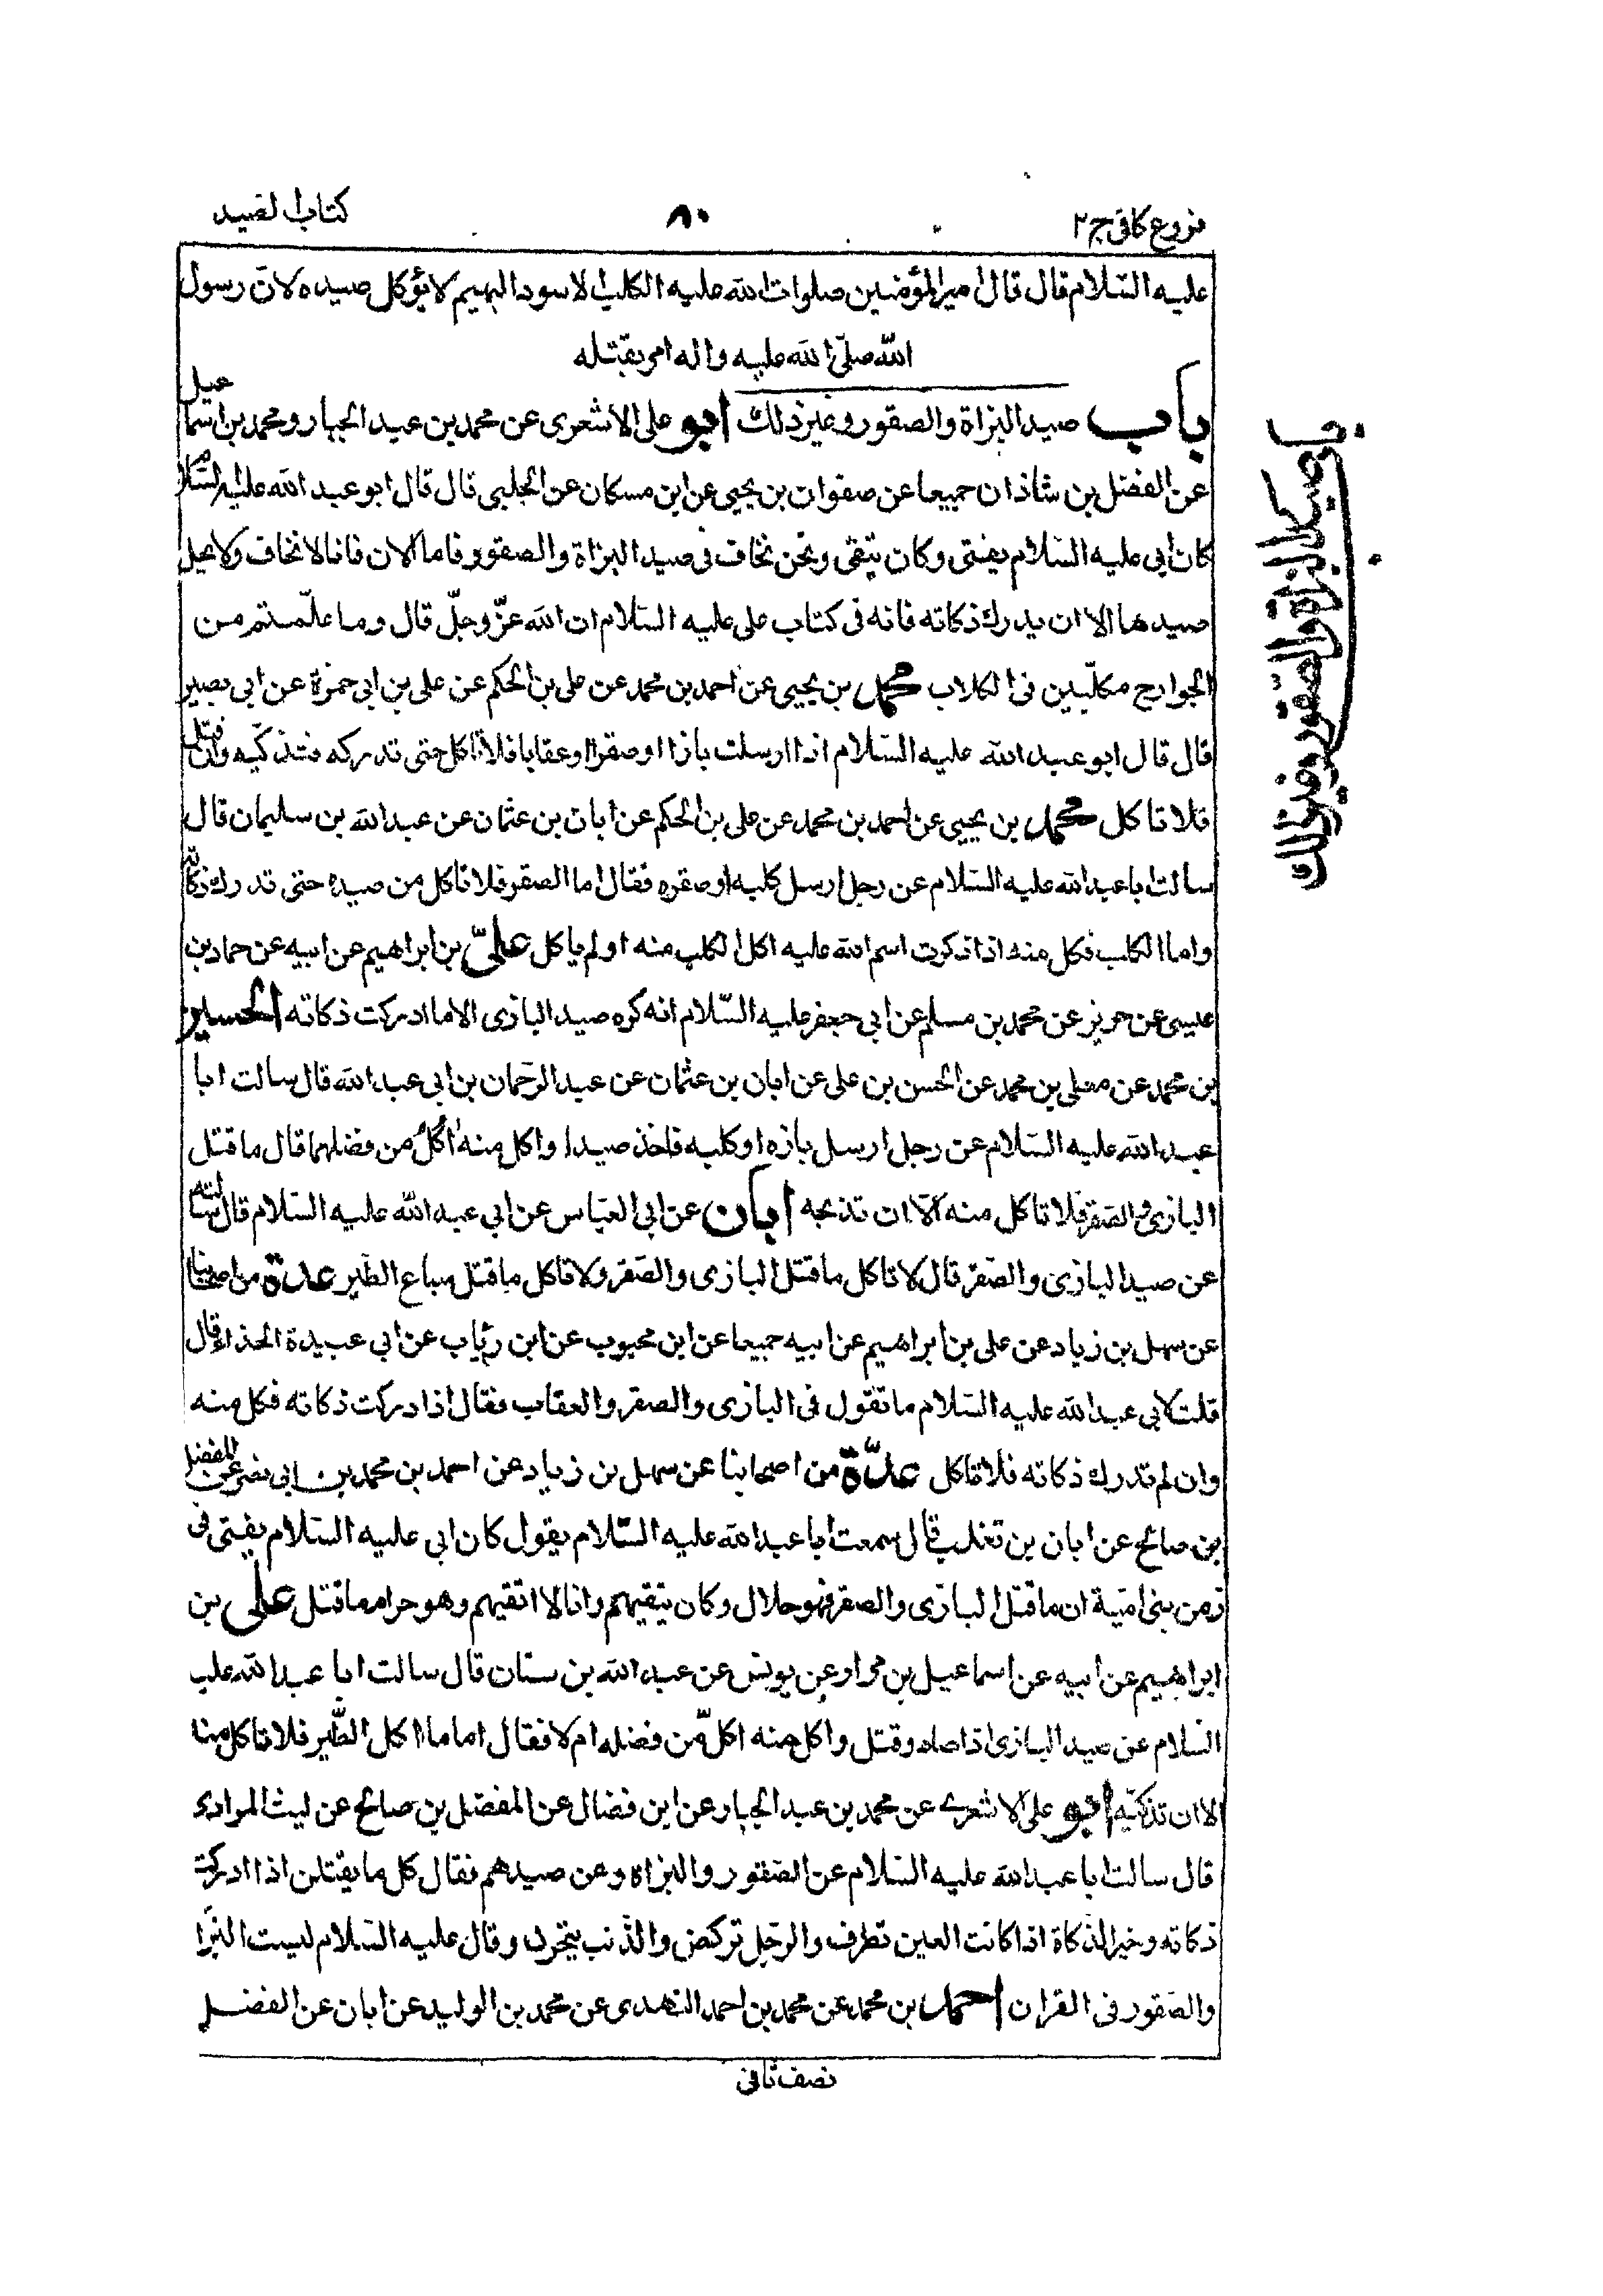 فروع كافى ج٢
٨٠
كتاب الصيد
عليه السّلام قال قال امير المؤمنين صلوات الله عليه الكلب الاسود البهيم لا يؤكل صيده لانّ رسول
الله صلّى الله عليه واله امر بقتله
باب صيد البزاة والصقور وغير ذلك ابو على الاشعرى عن محمد بن عبد الجبار ومحمد بن اسماعيل
عن الفضل بن شاذان جميعا عن صفوان بن يحيى عن ابن مسكان عن الحلبى قال قال ابو عبد الله عليه السّلام
كان ابى عليه السّلام يفتى وكان يتقى ونحن نخاف فى صيد البزاة والصقور فاما الان فانا لا نخاف ولا يحل
صيدها الا ان يدرك ذكاته فانه فى كتاب على عليه السّلام ان الله عزّ وجلّ قال وما علّمتم من
الجوارح مكلّبين فى الكلاب محمد بن يحيى عن احمد بن محمد عن على بن الحكم عن على بن ابى حمزة عن ابى بصير
قال قال ابو عبد الله عليه السّلام اذا ارسلت بازا او صقرا او عقابا فلا تاكل حتى تدركه فتذكّيه وان قتل
فلا تاكل محمد بن يحيى عن احمد بن محمد عن على بن الحكم عن ابان بن عثمان عن عبد الله بن سليمان قال
سالت ابا عبد الله عليه السّلام عن رجل ارسل كلبه او صقره فقال اما الصقر فلا تاكل من صيده حتى تدرك ذكاته
واما الكلب فكل منه اذا ذكرت اسم الله عليه اكل الكلب منه او لم ياكل علىّ بن ابراهيم عن ابيه عن حماد بن
عيسى عن حريز عن محمد بن مسلم عن ابى جعفر عليه السّلام انه كره صيد البازى الا ما ادركت ذكاته الحسين
بن محمد عن معلى بن محمد عن الحسن بن على عن ابان بن عثمان عن عبد الرحمان بن ابى عبد الله قال سالت ابا
عبد الله عليه السّلام عن رجل ارسل بازه او كلبه فاخذ صيدا واكل منه اكل من فضلهما قال ما قتل
البازى والصقر فلا تاكل منه الّا ان تذبحه ابان عن ابى العبّاس عن ابى عبد الله عليه السّلام قال سالته
عن صيد البازى والصّقر قال لا تاكل ما قتل البازى والصّقر ولا تاكل ما قتل سباع الطّير عدة من اصحابنا
عن سهل بن زياد عن على بن ابراهيم عن ابيه جميعا عن ابن محبوب عن ابن رئاب عن ابى عبيدة الحذاء قال
قلت لابى عبد الله عليه السّلام ما تقول فى البازى والصقر والعقاب فقال اذا دركت ذكاته فكل منه
وان لم تدرك ذكاته فلا تاكل عدّة من اصحابنا عن سهل بن زياد عن احمد بن محمد بن ابى نصر عن المفضل
بن صالح عن ابان بن تغلب قال سمعت ابا عبد الله عليه السّلام يقول كان ابى عليه السّلام يفتى فى
زمن بنى اميّة ان ما قتل البازى والصقر فهو حلال وكان يتقيهم وانا لا اتقيهم وهو حرام ما قتل على بن
ابراهيم عن ابيه عن اسماعيل بن مرار عن يونس عن عبد الله بن سنان قال سالت ابا عبد الله عليه
السّلام عن صيد البازى اذا صاد وقتل واكل منه اكل من فضله ام لا فقال اما ما اكل الطّير فلا تاكل منه
الا ان تذكيه ابو على الاشعرى عن محمد بن عبد الجبار عن ابن فضال عن المفضل بن صالح عن ليث المرادى
قال سالت ابا عبد الله عليه السّلام عن الصّقور والبزاة وعن صيدهم فقال كل ما يقتلن اذا ادركت
ذكاته وخير الذّكاة اذا كانت العين تطرف والرّجل تركض والذّنب يتحرك وقال عليه السّلام ليست البزا
والصّقور فى القران احمد بن محمد عن محمد بن احمد النهدى عن محمد بن الوليد عن ابان عن الفضل
نصف ثانى
باب صيد البزاة والصقور وغير ذلك